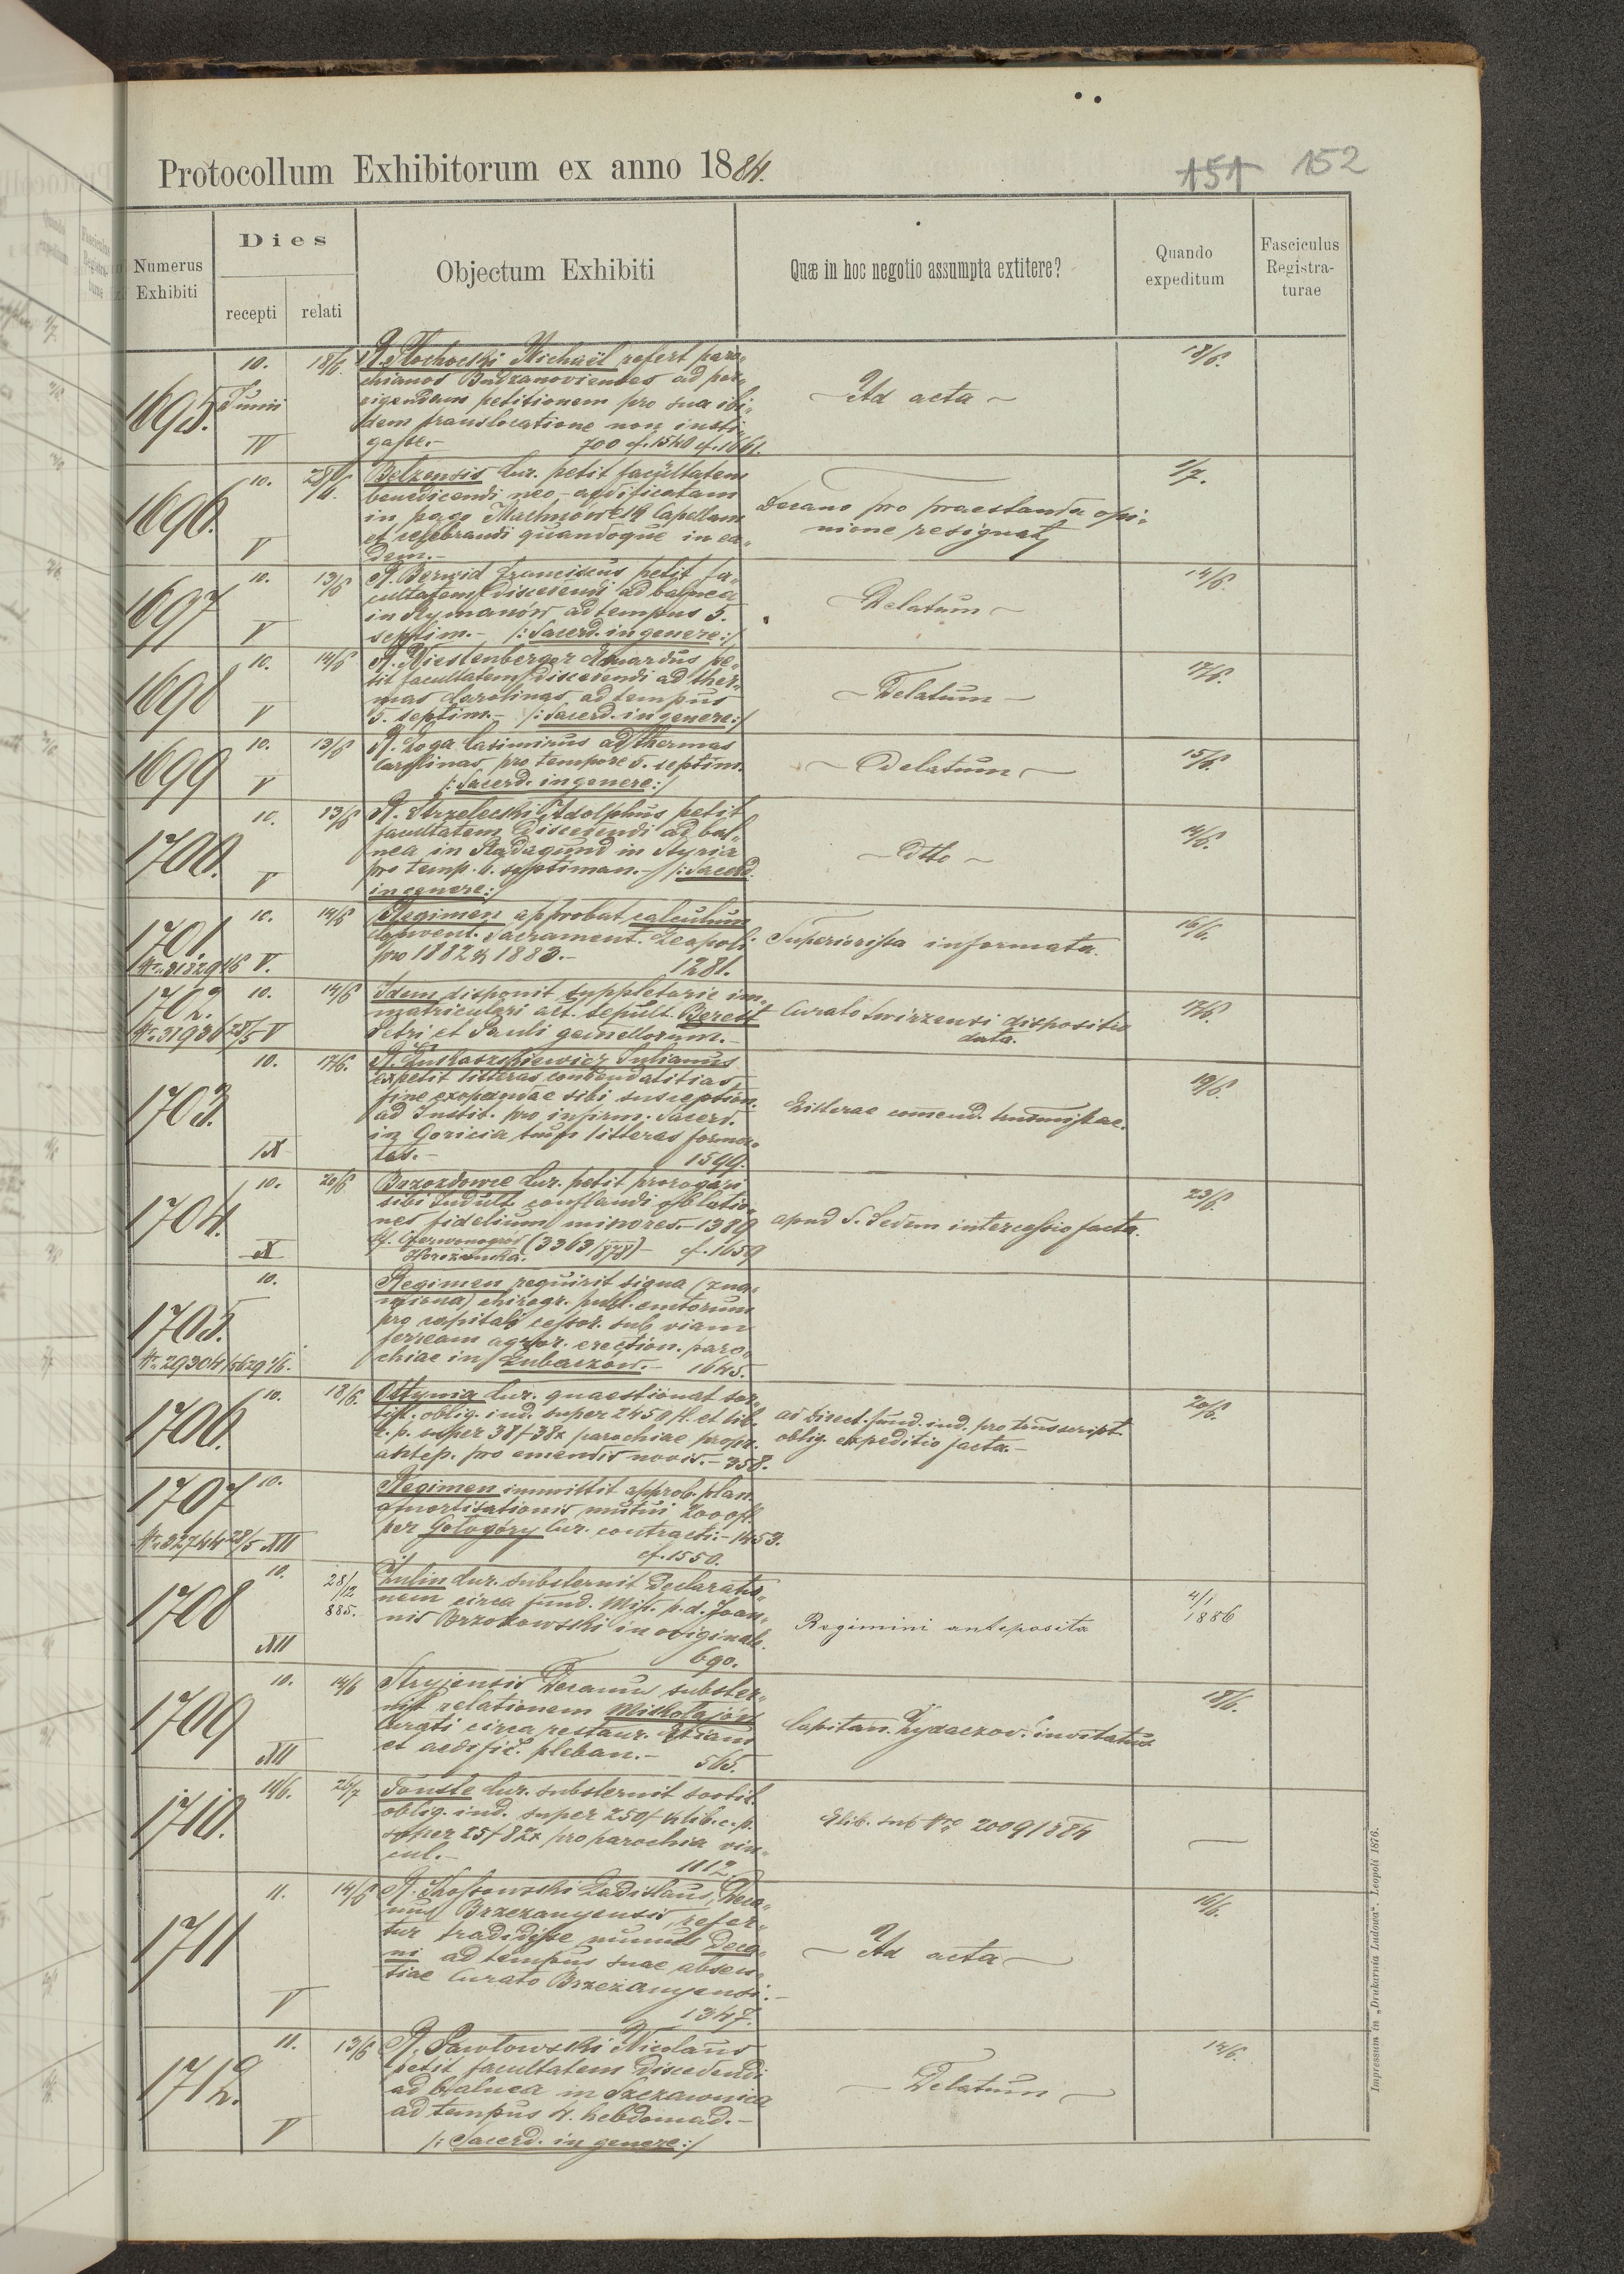 Protocollum Exhibitorum ex anno 1884.
151 152
Numerus Exhibiti
Dies
recepti
relati
Objectum Exhibiti
Quæ in hoc negotio assumpta extitere?
Quando expeditum
Fasciculus Registra-
turae
1695. 10. Junii IV 18/6.
Michaël refert paro„
chianos Budzanovienses ad por„
rigendam petitionem pro sua ibi„
dem translocatione non insti„
gasse.- 700 cf. 1540 cf. 1661.
~ Ad acta ~
18/6.
1696. 10. V 28/6.
Belzensis Cur. petit facultatem
benedicendi neo-aedificatam
in pago Machnowek Capellam
et celebrandi quandoque in ea„
dem.-
Decano pro praestanda opi„
nione resignat
1/7.
1697 10. V 13/6
R. Berwid Franciscus petit fa„
cultatem discedendi ad balnea
in Rymanów ad tempus 5.
septim.- /: Sacerd. in genere :/
~ Delatum ~
14/6.
1698 10. V 14/6
R. petit facultatem discedendi ad ther„
mas Carolinas ad tempus
5. septim.- /: Sacerd. in genere :/
~ Delatum ~
17/6.
1699 10. V 13/6
R. Zoga Casimirus ad thermas
Carolinas pro tempore 5. septim.
/: Sacerd. in genere :/
~ Delatum ~
15/6.
1700. 10. V 13/6
R. Strzelecki Adolphus petit
facultatem discedendi ad bal„
nea in Radagund in Styria
pro temp. 6. septiman.- /: Sacerd.
in genere :/
~ dtto ~
14/6.
1701. 10. V. 14/6
Regimen approbat calculum
Convent. Sacrament. Leopoli
pro 1882 & 1883.- 1281.
Superiorissa informata.
16/6.
1702. 10. 14/6
Nr. 31936 28/5 V
Idem disponit suppletorie im„
matriculari act. sepult. Berest
Petri et Pauli gemellorum.-
Curato Swirzensi dispositio
data.
17/6.
1703. 10. IX 17/6.
R. Łukaszkiewicz Julianus
expetit litteras comendatitias
fine exoperandae sibi susception.
ad Instit. pro infirm. Sacerd.
in Goricia tum litteras forma„
tas.- 1599.
Litterae comend. transmissae.
19/6.
1704. 10. X 20/6
Brzozdowce Cur. petit prorogari
sibi Indult. conflandi oblatio„
nes fidelium minores.- 1389
cf. Czerwonogród (3363/878)- cf. 1659
Horożanka.
apud S. Sedem intercessio facta.
23/6.
1705. 10.
Regimen requirit signa (zna„
miona) chirogr. publ. emtorum
pro capitali cessor. sub viam
ferream agror. erection. paro„
chiae in Lubaczów.- 1645.
1706. 10. 18/6.
Ottynia Cur. quaestionat sor„
tist. oblig. ind. super 2450 fl. et lib.
c. p. super 38 f 38x parochiae propr.
antep. pro emendis novis.- 358.
ad Direct. fund. ind. pro transscript.
oblig. expeditio facta.-
20/6.
1707 10.
Nr. 32744 28/5 XII
Regimen immittit approb. plan.
amortisationis mutui 2000 fl.
per Gołogóry Cur. contracti.- 1453.
cf. 1550.
1708 10. XII 28/12 885.
Żulin Cur. substernit Declaratio„
nem circa fund. Miss. p. d. Joan„
nis Brzozowski in originale.
690.
Regimini anteposita
4/1 1886
1709 10. XII 14/6
Stryjensis Decanus subster„
nit relationem Mikołajów
Curati circa restaur. Etiam
et aedific. pleban.- 565.
Capitan. Żydaczov. invitatus
18/6.
1710. 10/6. 26/7
Touste Cur. substernit sortit.
oblig. ind. super 250 f & lib. c. p.
super 25 f 82x pro parochia vin„
cul.- 1112.
Elib. sub Nro 2009/884
1711 11. V 14/6
R. Ladislaus, Deca„
nus Brzezanyensis, refer„
tur tradidisse munus Deca„
ni ad tempus suae absen„
tiae Curato Brzezanyensi.-
1347.
~ Ad acta ~
16/6.
1712. 11. V 13/6
R. Pawłowski Nicolaus
petit facultatem discedendi
ad balnea in Szczawnica
ad tempus 4. hebdomad.-
/: Sacerd. in genere :/
~ Delatum ~
14/6.
Impressum in „Drukarnia Ludowa“. Leopoli 1876.